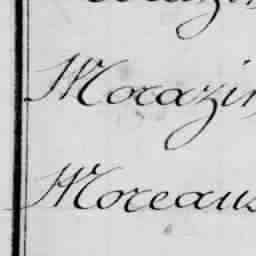 Morazin
Moreaus